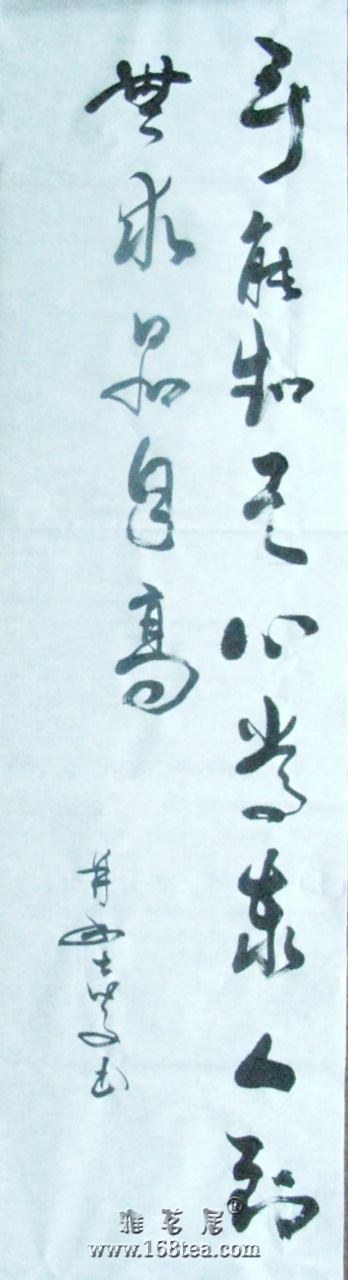 事能知足心常泰人到
無求品自高
雅茗居®
www.168tea.com